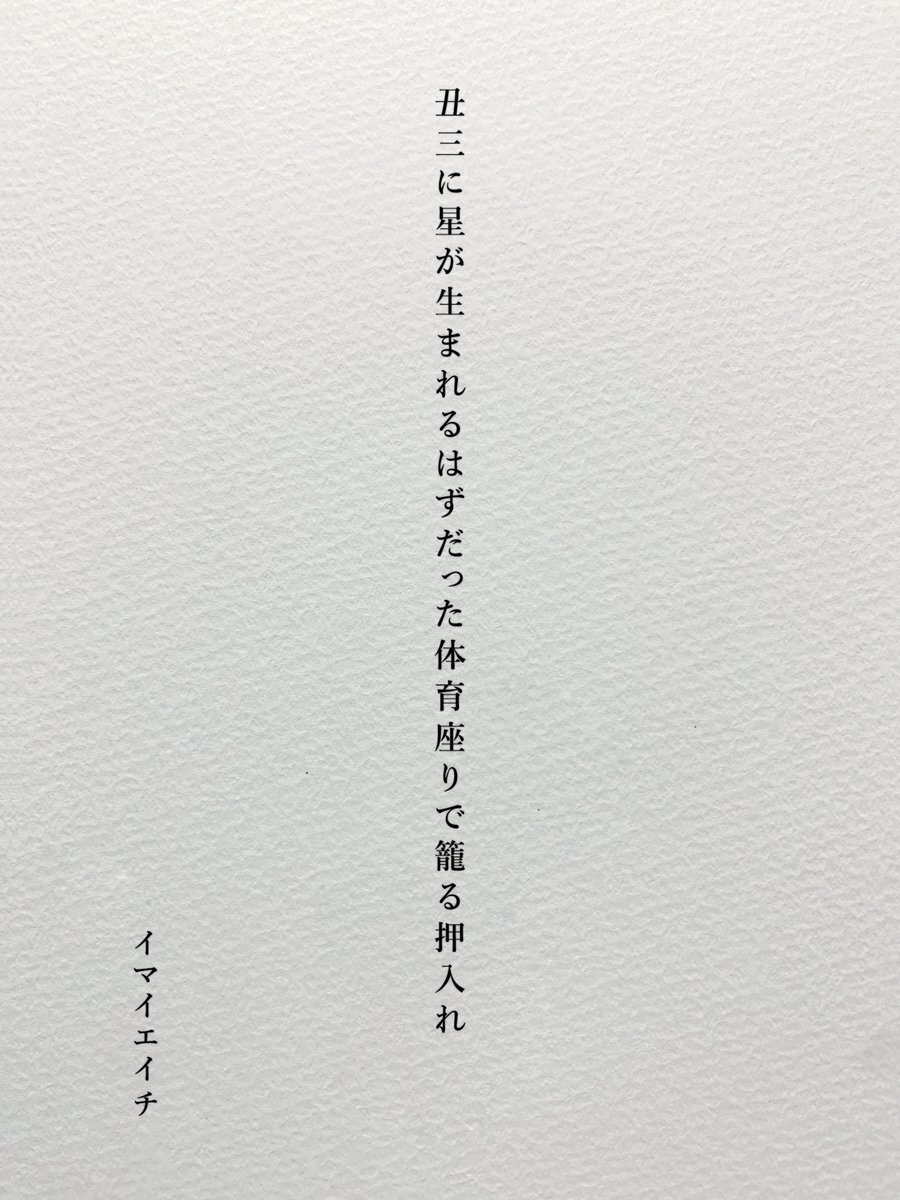 丑三に星が生まれるはずだった体育座りで籠る押入れ
イマイエイチ